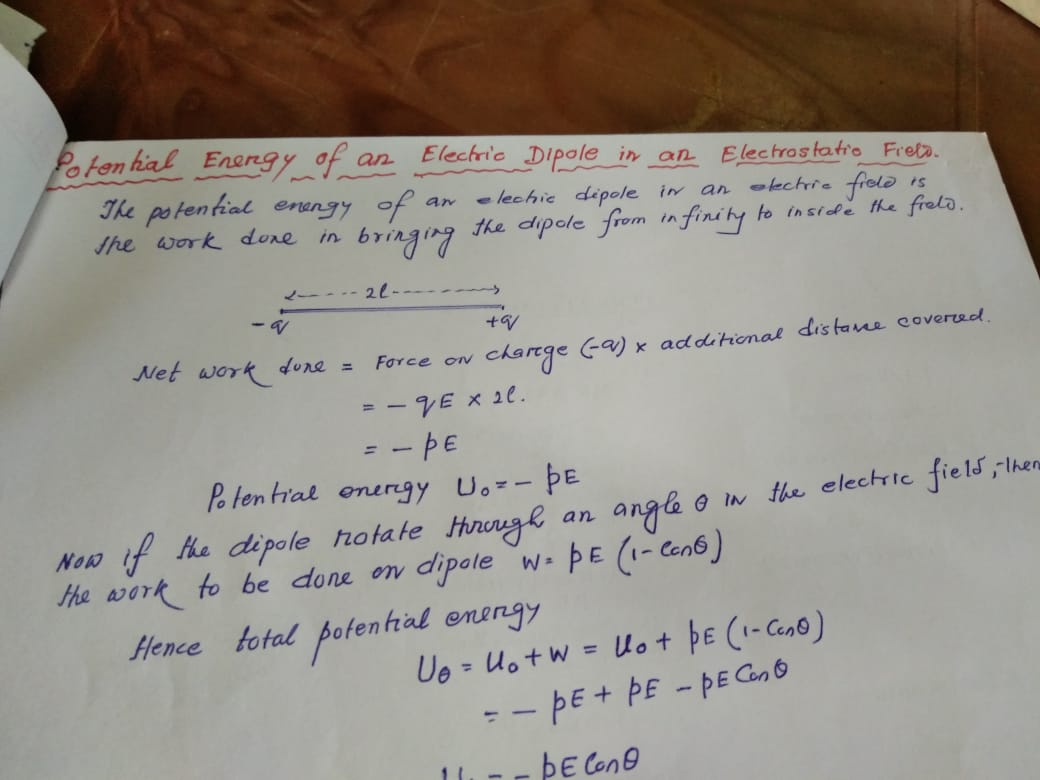 Potential Energy of an Electric Dipole in an Electrostatic Field.
The potential energy of an electric dipole in an electric field is
the work done in bringing the dipole from infinity to inside the field.
2l
-q +q
Net work done = Force on charge (-q) x additional distance covered.
= - qE x 2l.
= - pE
Potential energy U₀ = - pE
Now if the dipole rotate through an angle θ in the electric field, then
the work to be done on dipole W = pE (1- Cosθ)
Hence total potential energy
Uθ = U₀ + W = U₀ + pE (1- Cosθ)
= - pE + pE - pE Cosθ
= - pE Cosθ